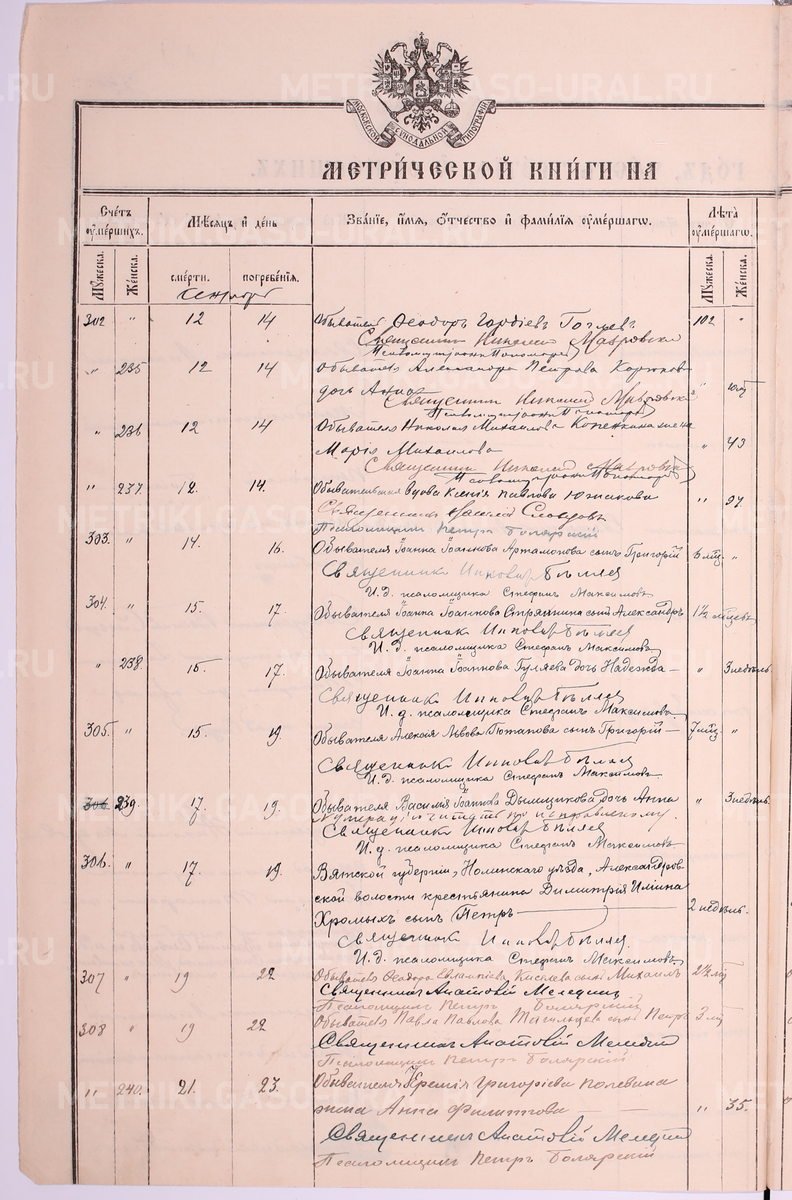 МОСКОВСКОЙ СѴНОДАЛЬНОЙ ТИПОГРАФІИ
МЕТРИ́ЧЕСКОЙ КНИ́ГИ НА
Сче́тъ ᲂумéршихъ.
Мѣсяцъ и день
Звáніе, и́мя, Ѻтчество и фамилія ᲂумéршагѡ.
Лѣта ᲂумéршагѡ.
Мꙋжеска.
Женска.
смерти.
погребéнія.
Мꙋжеска.
Женска.
Сентябрь
302 " 12 14 Обыватель Ѳеодоръ Гордіевъ 102 "
Священникъ Николай Мавровскій
" 235 12 14 Обывателя Александра Петрова
дочь Анна "
Священникъ Николай Мавровскій
" 236 12 14 Обывателя Николая Михайлова жена
Марія Михайлова " 43
Священникъ Николай Мавровскій
" 237 12. 14. Обывательская вдова Ксенія Павлова Южакова " 97
Священникъ Василій Словцовъ
Псаломщикъ Петръ Боярскій
303. " 14. 16. Обывателя Іоанна Іоаннова Артамонова сынъ Григорій 6 мѣс. "
Священникъ Иннок. Бѣляев
И. д. псаломщика Стефанъ Максимовъ
304. " 15. 17. Обывателя Іоанна Іоаннова Стряпнина сынъ Александръ 1½ мѣсяцъ
Священникъ Иннок. Бѣляев
И. д. псаломщика Стефанъ Максимовъ
" 238 15. 17. Обывателя Іоанна Іоаннова Гуляева дочь Надежда — " 3 недѣль.
Священникъ Иннок. Бѣляев
И. д. псаломщика Стефанъ Максимовъ
305. " 15. 19. Обывателя Алексія Львова Потапова сынъ Григорій — 7 мѣс. "
Священникъ Иннок. Бѣляев
И. д. псаломщика Стефанъ Максимовъ
306 239 17. 19. Обывателя Василія Іоаннова Дымшикова дочь Анна " 3 недѣль.
Нумерацію читать по исправленному.
Священникъ Иннок. Бѣляев
И. д. псаломщика Стефанъ Максимовъ
306. " 17. 19. Вятской губерніи, Нолинскаго уѣзда, Александров-
ской волости крестьянина Димитрія Ильина
Хромыхъ сынъ Петръ — 2 недѣль.
Священникъ Иннок. Бѣляев
И. д. псаломщика Стефанъ Максимовъ
307 " 19 22 Обывателя Ѳеодора Евлампіева Киселева сынъ Михаилъ
Священникъ Анатолій
Псаломщикъ Петръ Боярскій
308 " 19 22 Обывателя Павла Павлова Тагильцева сынъ Петръ
Священникъ Анатолій
Псаломщикъ Петръ Боярскій
" 240. 21. 23. Обывателя Ереміи Григоріева Полевина
жена Анна Филиппова — " 35.
Священникъ Анатолій
Псаломщикъ Петръ Боярскій
METRIKI.GASO-URAL.RU